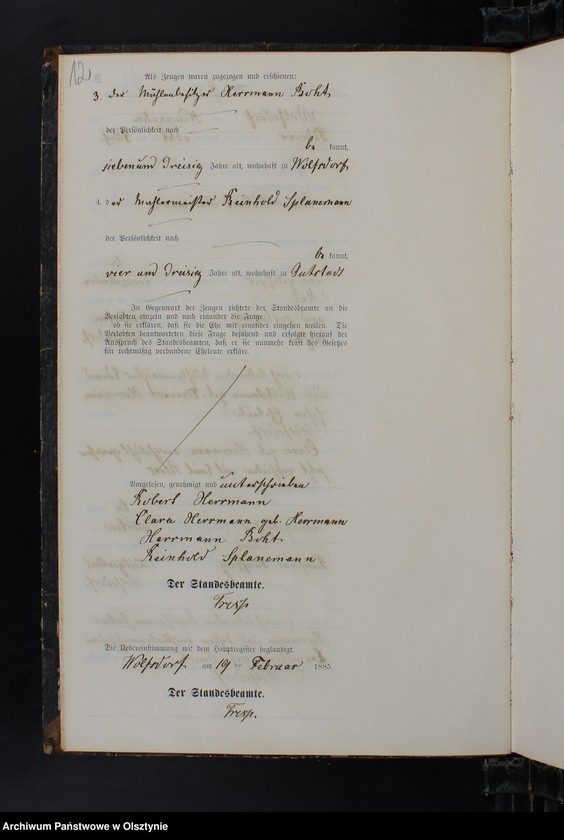 12
Als Zeugen waren zugezogen und erschienen:
3. der Mühlenbesitzer Herrmann Boht
der Persönlichkeit nach
be kannt,
siebenund dreisig Jahre alt, wohnhaft zu Wolfsdorf
4. der Mahlermeister Reinhold Splanemann
der Persönlichkeit nach
be kannt,
vier und dreisig Jahre alt, wohnhaft zu Gutstadt
In Gegenwart der Zeugen richtete der Standesbeamte an die
Verlobten einzeln und nach einander die Frage:
ob sie erklären, daß sie die Ehe mit einander eingehen wollen. Die
Verlobten beantworteten diese Frage bejahend und erfolgte hierauf der
Ausspruch des Standesbeamten, daß er sie nunmehr kraft des Gesetzes
für rechtmäßig verbundene Eheleute erkläre.
Vorgelesen, genehmigt und unterschrieben
Robert Herrmann
Clara Herrmann geb. Herrmann
Herrmann Boht
Reinhold Splanemann
Der Standesbeamte.
Tresp
Die Uebereinstimmung mit dem Hauptregister beglaubigt.
Wolfsdorf am 19 ten Februar 1885.
Der Standesbeamte.
Tresp.
Archiwum Państwowe w Olsztynie